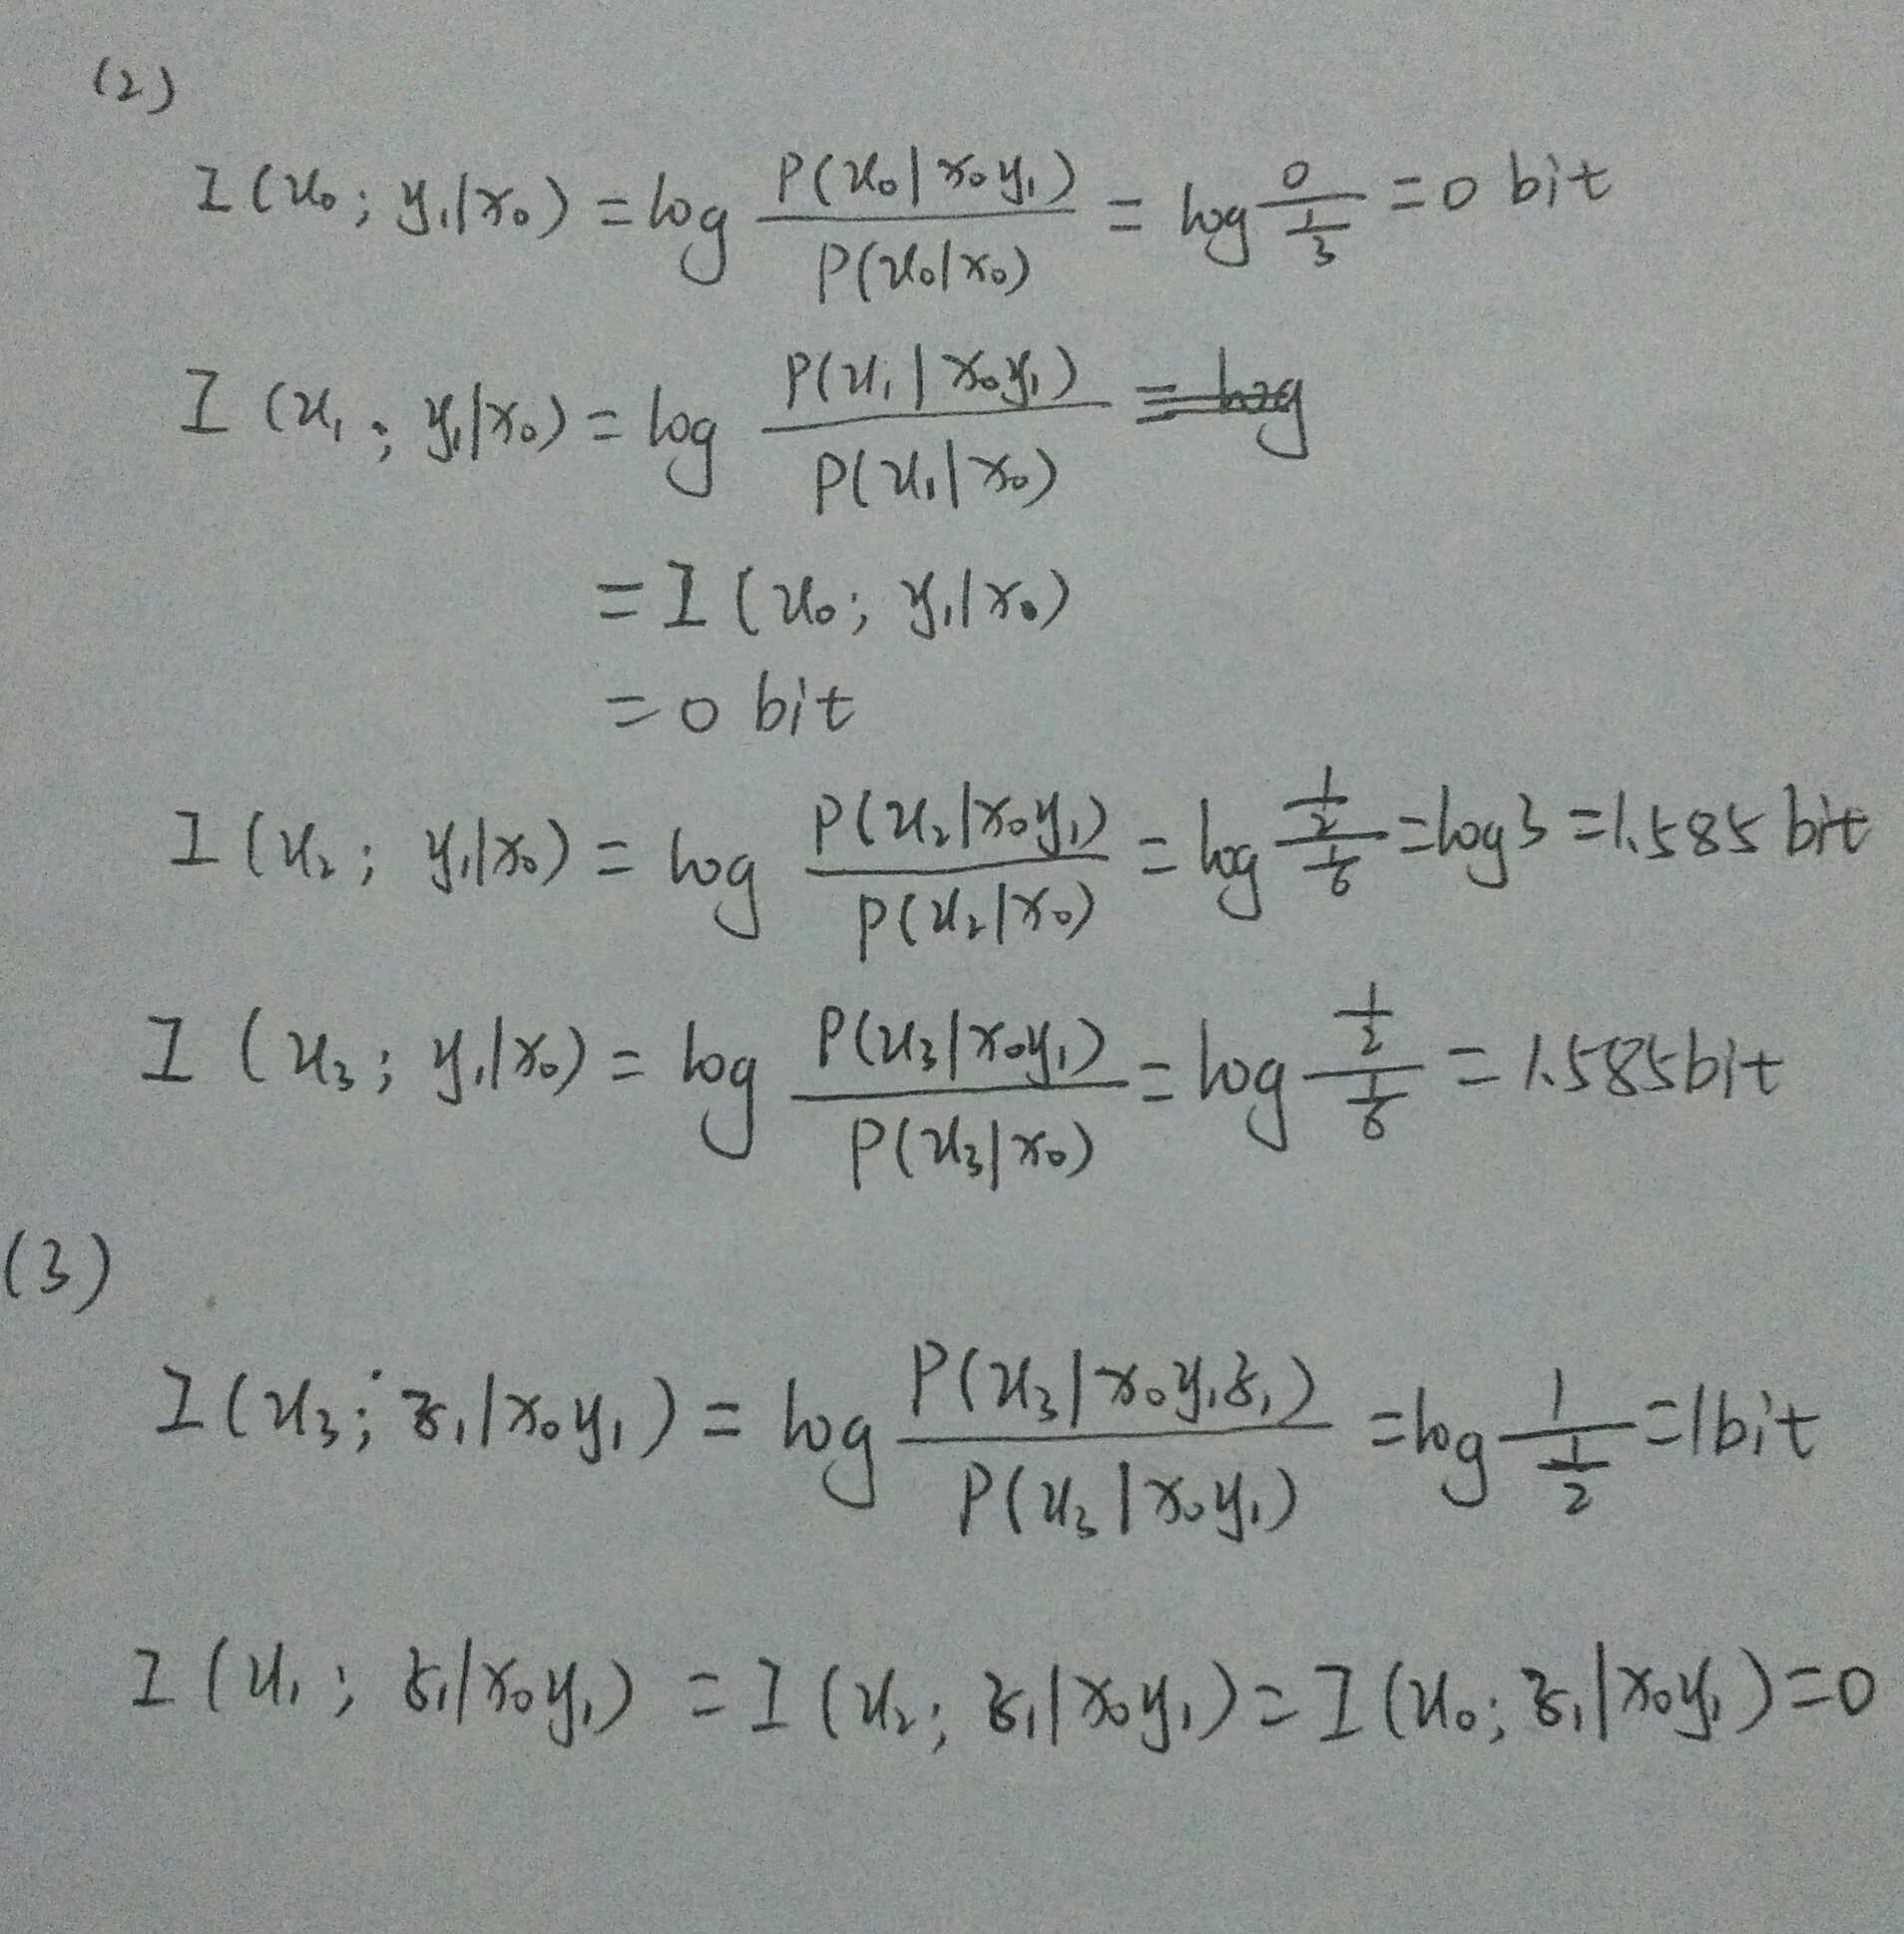 (2)
I(u₀; y₁|x₀) = log P(u₀|x₀y₁) / P(u₀|x₀) = log 0 / (1/3) = 0 bit
I(u₁; y₁|x₀) = log P(u₁|x₀y₁) / P(u₁|x₀) = log
= I(u₀; y₁|x₀)
= 0 bit
I(u₂; y₁|x₀) = log P(u₂|x₀y₁) / P(u₂|x₀) = log (1/2) / (1/6) = log3 = 1.585 bit
I(u₃; y₁|x₀) = log P(u₃|x₀y₁) / P(u₃|x₀) = log (1/2) / (1/6) = 1.585 bit
(3)
I(u₃; z₁|x₀y₁) = log P(u₃|x₀y₁z₁) / P(u₃|x₀y₁) = log 1 / (1/2) = 1 bit
I(u₁; z₁|x₀y₁) = I(u₂; z₁|x₀y₁) = I(u₀; z₁|x₀y₁) = 0